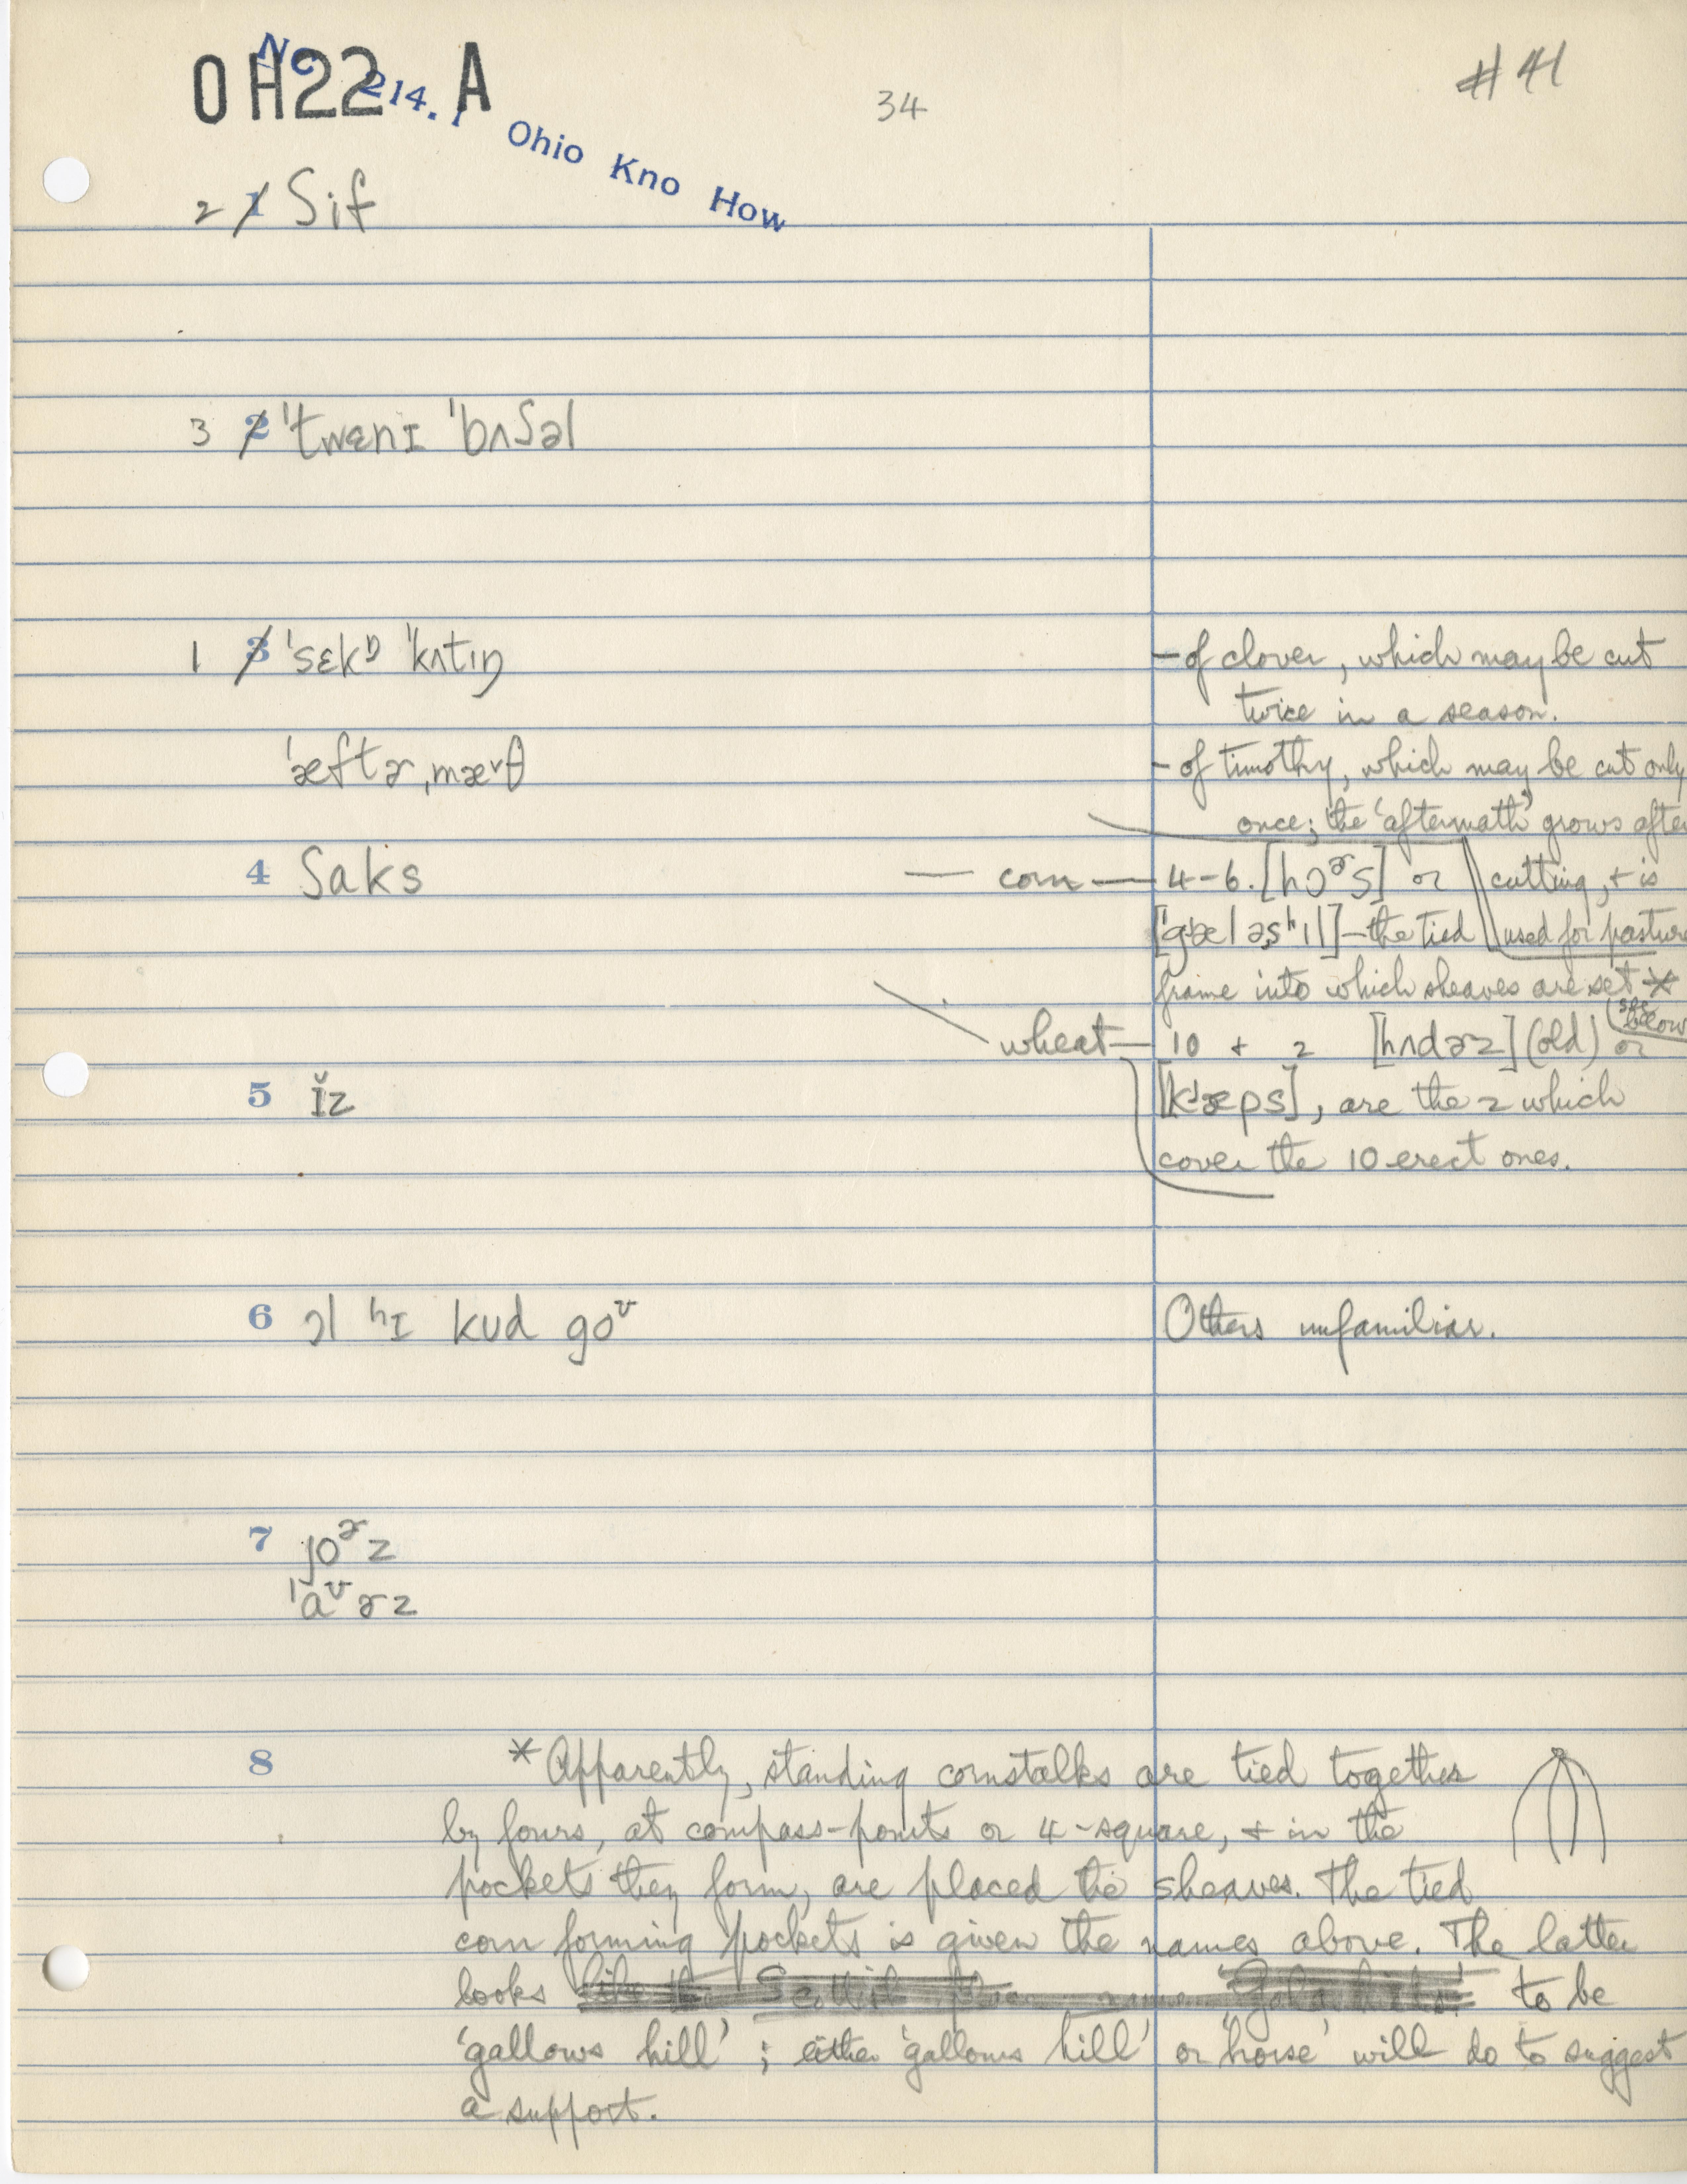 OH22 A
No 214.1 Ohio Kno How
34
#41
2 1 ʃif
3 2 ˈtwɛnɪ ˈbʌʃəl
1 3 ˈsɛkᵑ ˈkʌtɪŋ
– of clover, which may be cut
twice in a season.
ˈæftɚˌmæᵛθ
– of timothy, which may be cut only
once; the 'aftermath' grows after
cutting, + is
used for pasture
4 ʃaks
— corn — 4–6. [hɔɚs] or
[ˈgæləsˌhɪl] – the tied
frame into which sheaves are set *
(see below)
wheat — 10 + 2 [hʌdɚz] (old) or
[kæps], are the 2 which
cover the 10 erect ones.
5 ɪ̆z
6 ɔl ʰɪ kʊd goᶷ
Others unfamiliar.
7 joɚz
ˈaᶷɚz
8
* Apparently, standing cornstalks are tied together
by fours, at compass-points or 4-square, + in the
pockets they form, are placed the sheaves. The tied
corn forming pockets is given the names above. The latter
looks to be
'gallows hill'; either 'gallows hill' or 'horse' will do to suggest
a support.